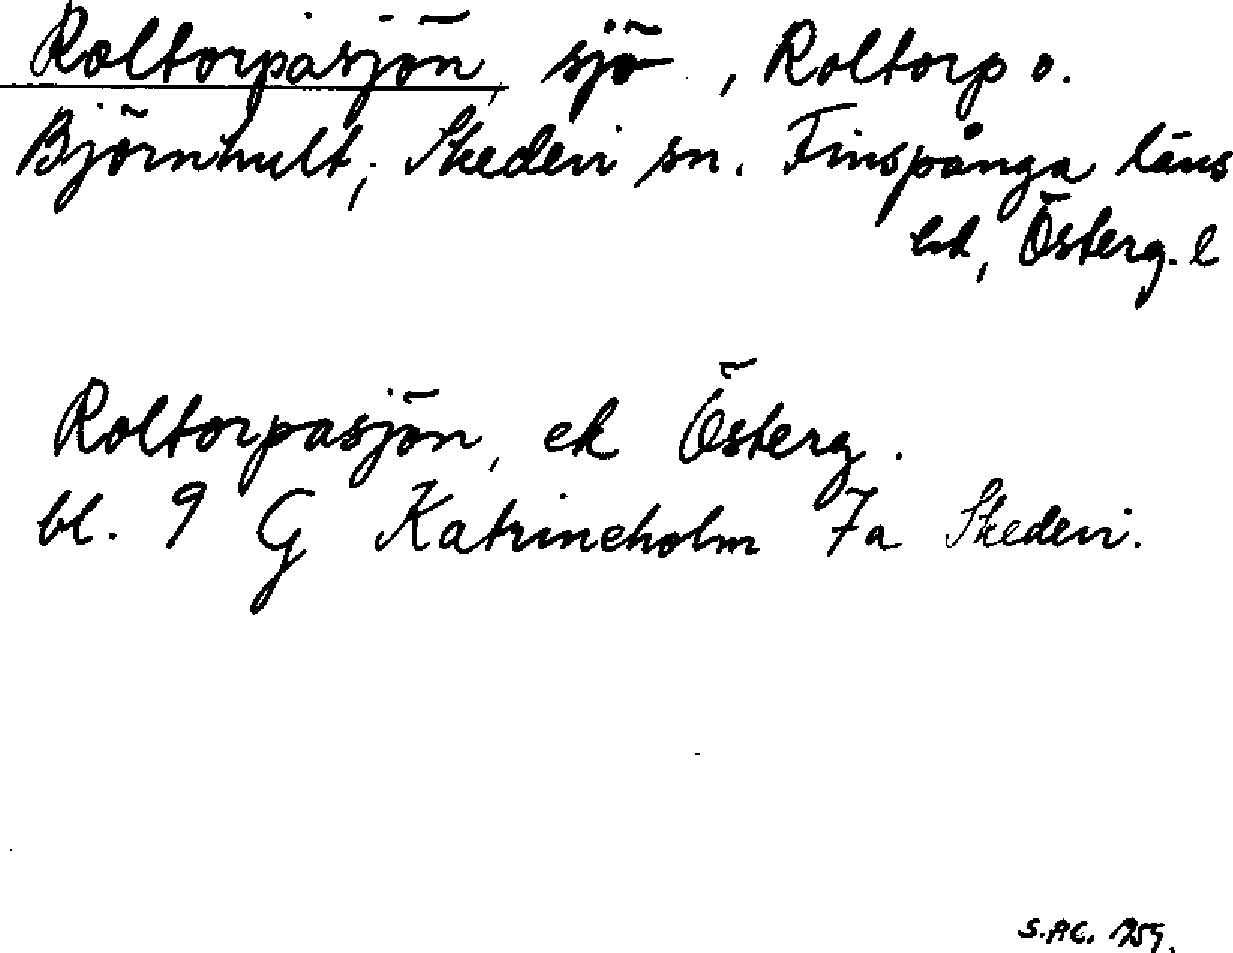 Roltorpasjön, sjö, Roltorp o.
Björnhult, Skedevi sn. Finspånga läns
hd, Österg. l
Roltorpasjön, ek Österg.
bl. 9 G Katrineholm 7a Skedevi.